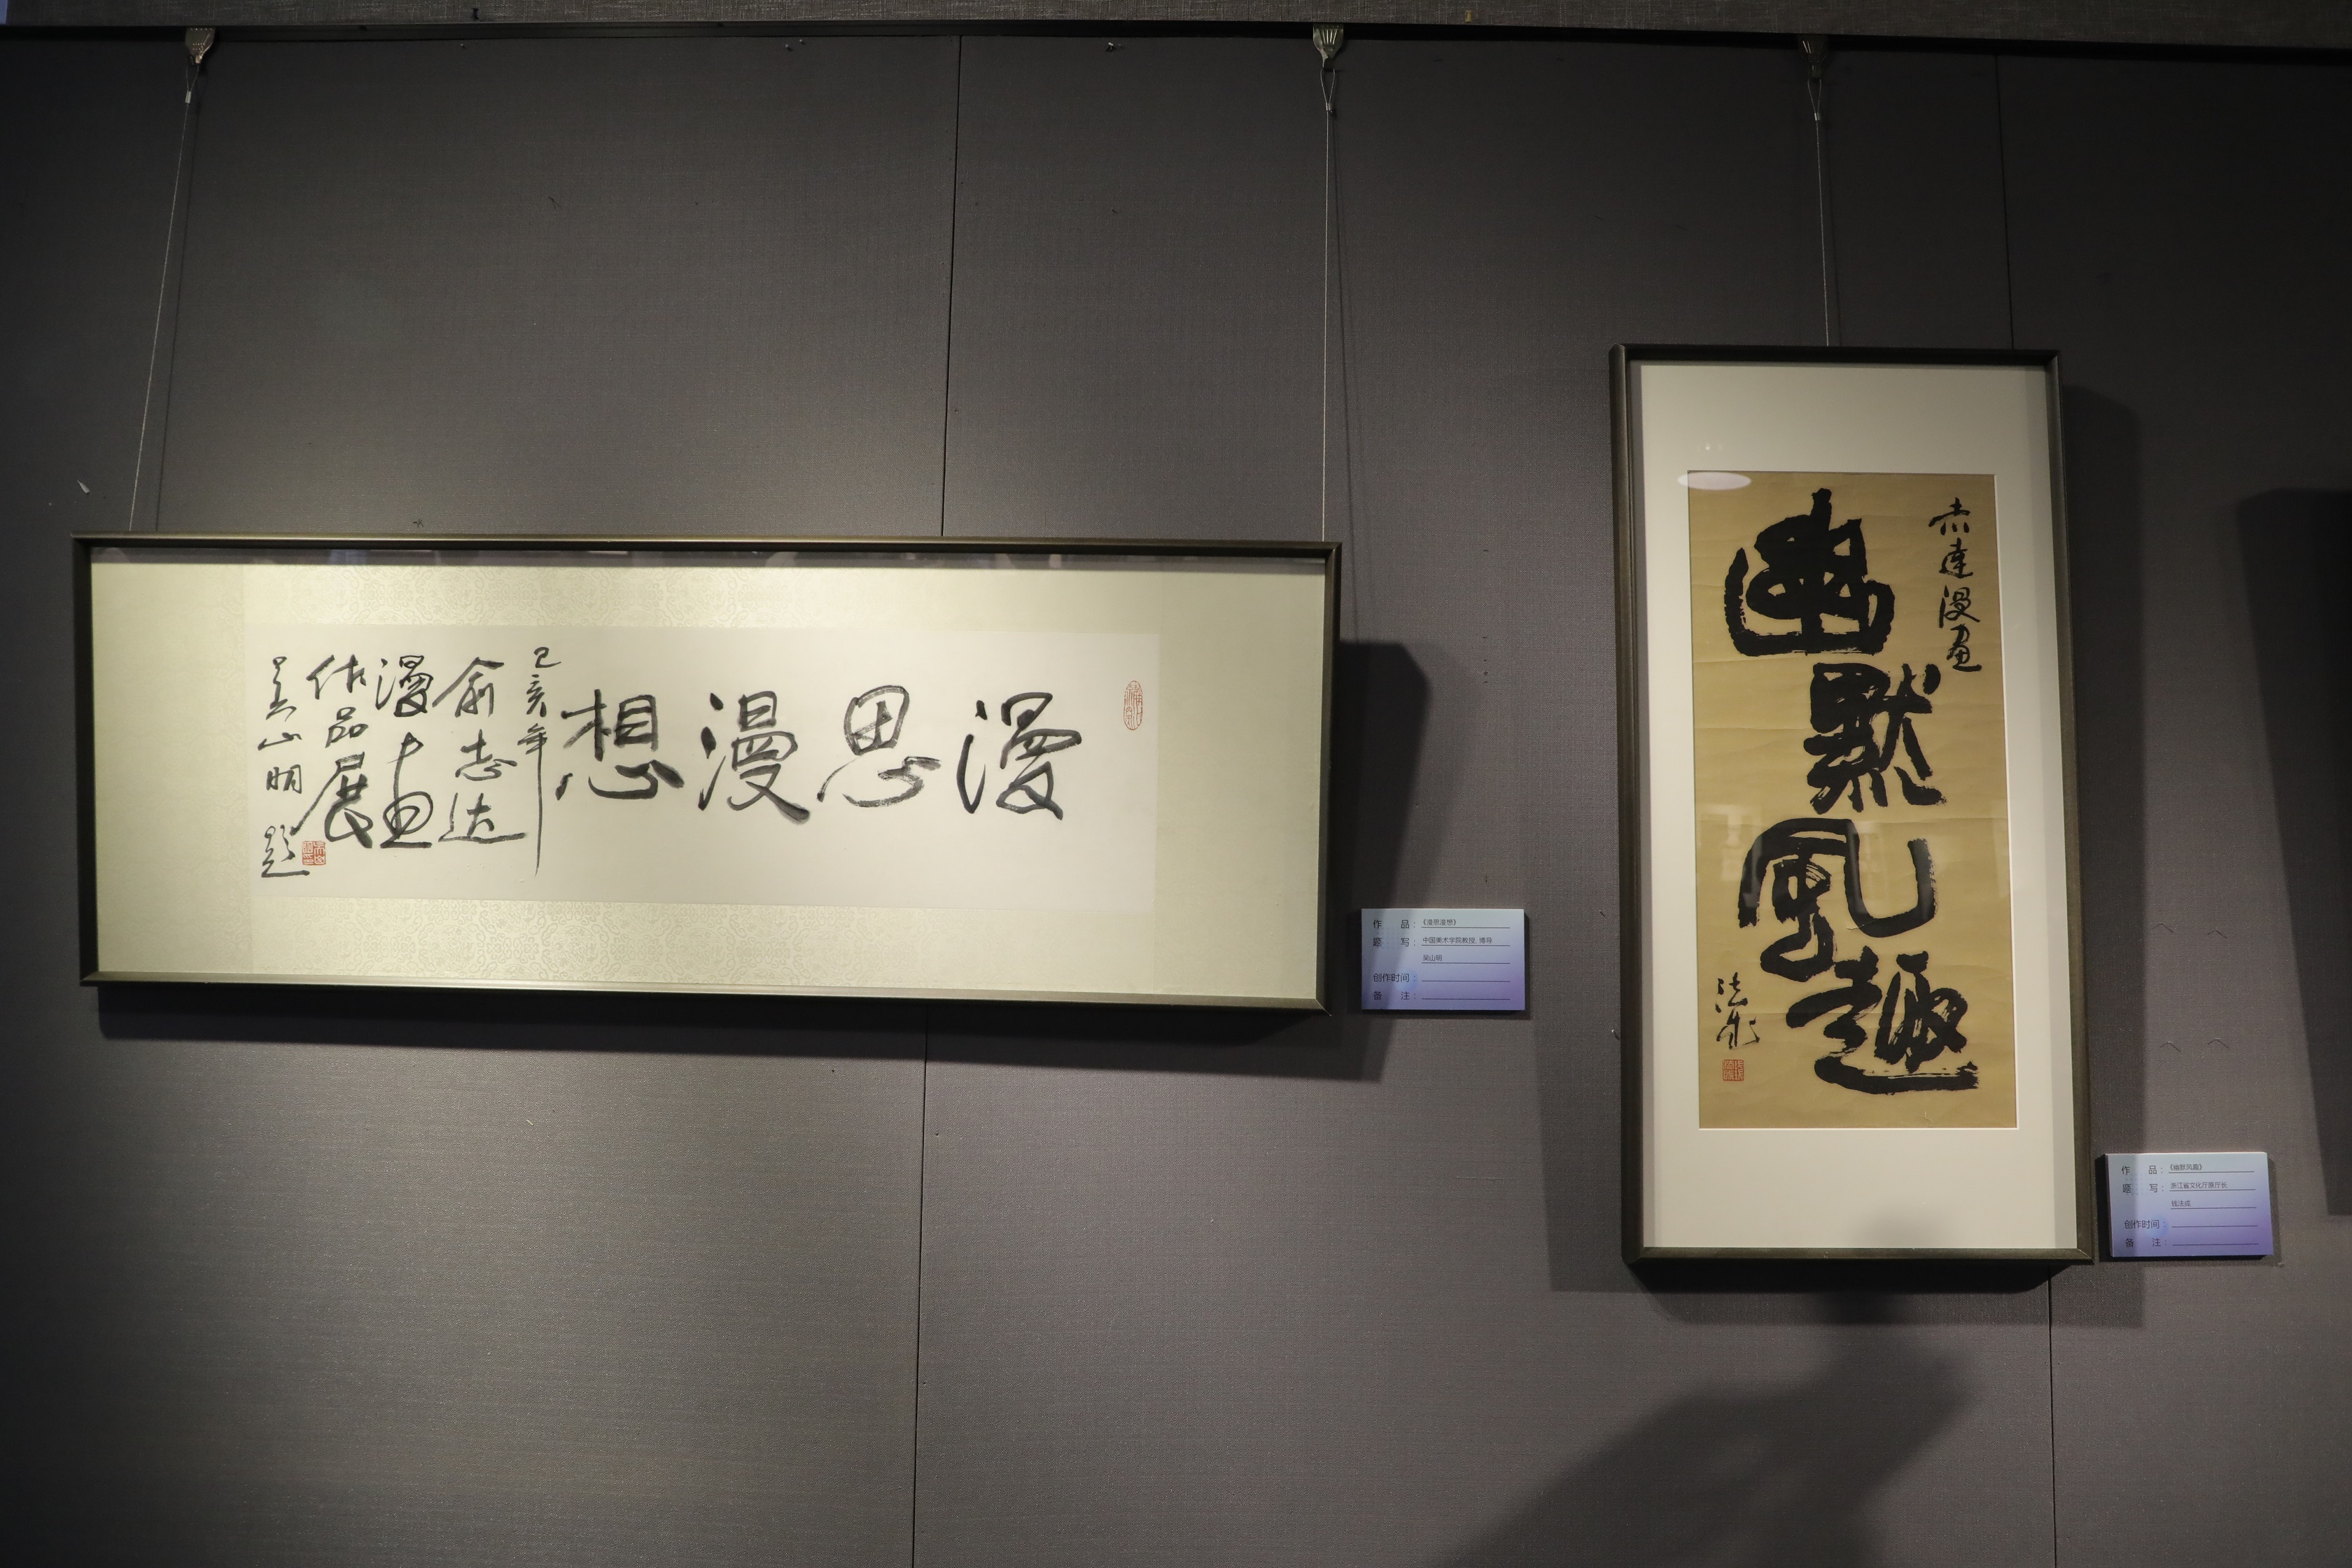 漫思漫想
己亥年
俞志达
漫画
作品展
吴山明题
作 品：《漫思漫想》
题 写：中国美术学院教授、博导
吴山明
创作时间：
备 注：
赤達漫画
幽默風趣
法成
作 品：《幽默风趣》
题 写：浙江省文化厅原厅长
钱法成
创作时间：
备 注：